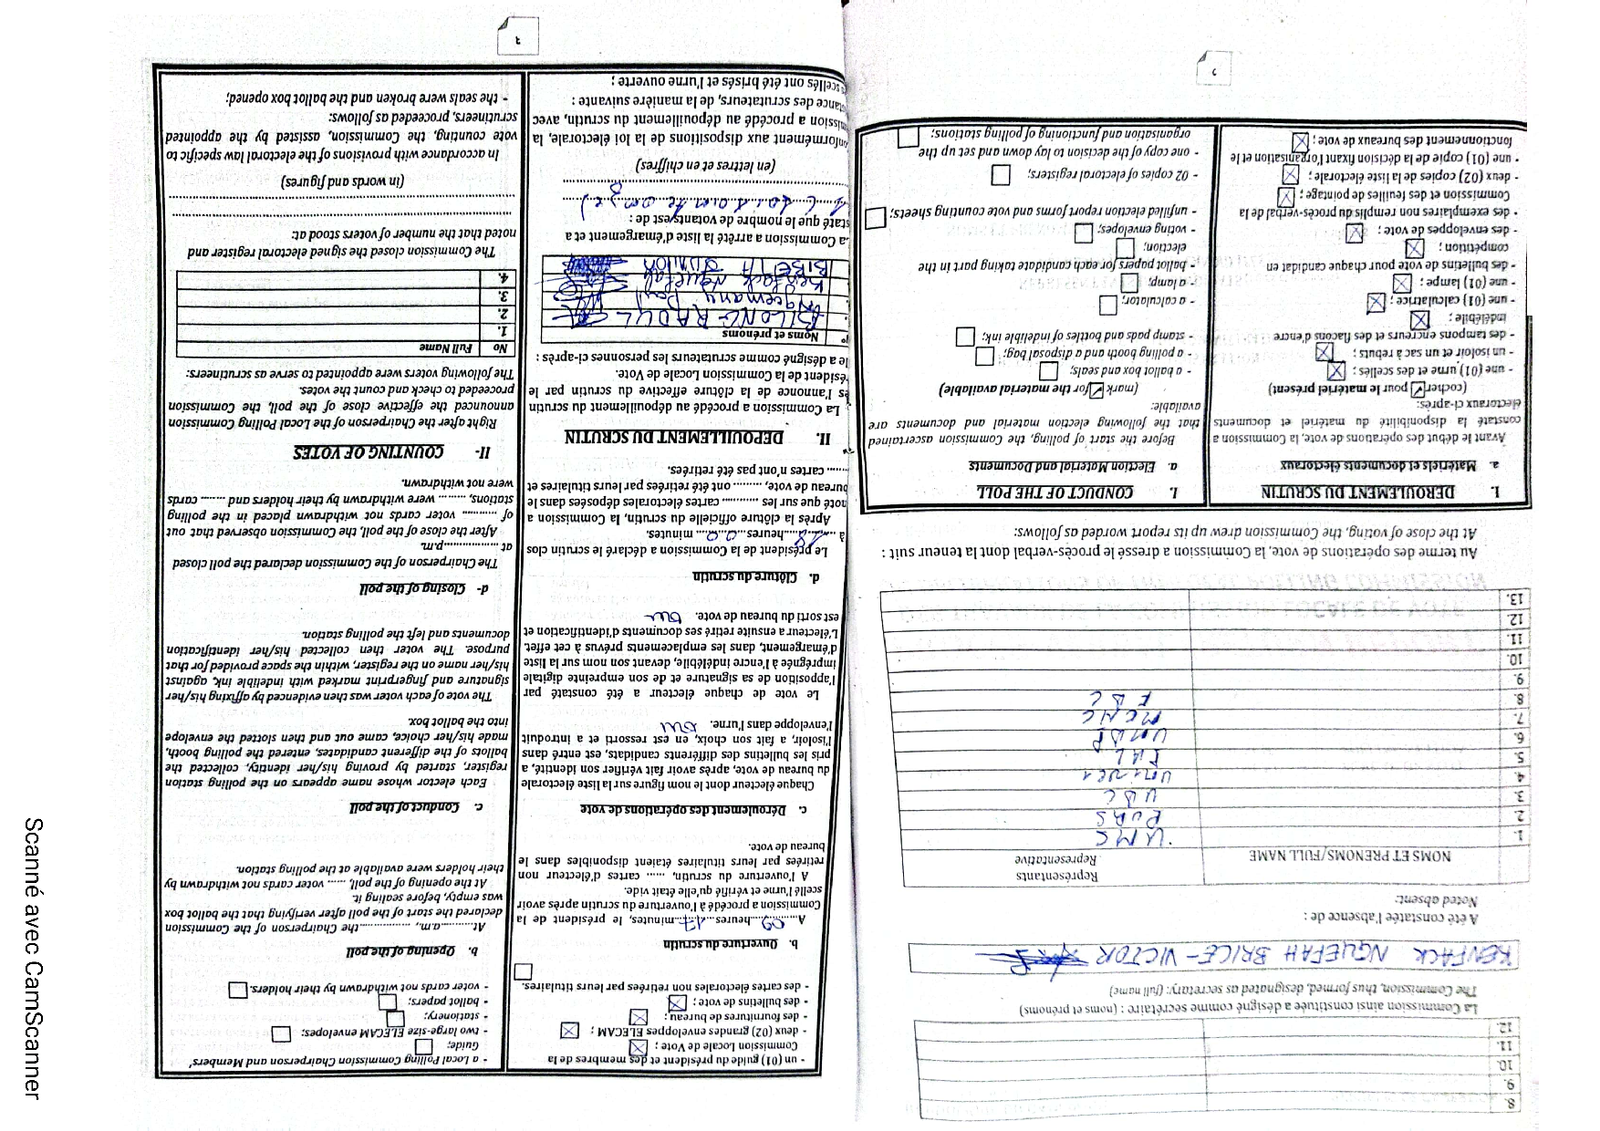 8.
9.
10.
11.
12.
La Commission ainsi constituée a désigné comme secrétaire : (noms et prénoms)
The Commission, thus formed, designated as secretary: (full name)
KENFACK NGUEFAH BRICE-VICTOR
A été constatée l'absence de :
Noted absent:
NOMS ET PRENOMS/FULL NAME
Représentants
Representative
1. UMS
2. PURS
3. UDC
4. Univers
5.
6. UNDP
7. MCNC
8. FDC
9.
10.
11.
12.
13.
Au terme des opérations de vote, la Commission a dressé le procès-verbal dont la teneur suit :
At the close of voting, the Commission drew up its report worded as follows:
I. DEROULEMENT DU SCRUTIN
a. Matériels et documents électoraux
Avant le début des opérations de vote, la Commission a
constaté la disponibilité du matériel et documents
électoraux ci-après:
(cocher pour le matériel présent)
- une (01) urne et des scellés ;
- un isoloir et un sac à rebuts ;
- des tampons encreurs et des flacons d'encre
indélébile ;
- une (01) calculatrice ;
- une (01) lampe ;
- des bulletins de vote pour chaque candidat en
compétition ;
- des enveloppes de vote ;
- des exemplaires non remplis du procès-verbal de la
Commission et des feuilles de pointage ;
- deux (02) copies de la liste électorale ;
- une (01) copie de la décision fixant l'organisation et le
fonctionnement des bureaux de vote ;
I. CONDUCT OF THE POLL
a. Election Material and Documents
Before the start of polling, the Commission ascertained
that the following election material and documents are
available:
(mark for the material available)
- a ballot box and seals;
- a polling booth and disposal bag;
- stamp pads and bottles of indelible ink;
- a calculator;
- a lamp;
- ballot papers for each candidate taking part in the
election;
- voting envelopes;
- unfilled election report forms and vote counting sheets;
- 02 copies of electoral registers;
- one copy of the decision to lay down and set up the
organisation and functioning of polling stations;
2
- un (01) guide du président et des membres de la
Commission Locale de Vote ;
- deux (02) grandes enveloppes ELECAM ;
- des fournitures de bureau ;
- des bulletins de vote ;
- des cartes électorales non retirées par leurs titulaires.
b. Ouverture du scrutin
A 09 heures 17 minutes, le président de la
Commission a procédé à l'ouverture du scrutin après avoir
scellé l'urne et vérifié qu'elle était vide.
A l'ouverture du scrutin, ...... cartes d'électeur non
retirées par leurs titulaires étaient disponibles dans le
bureau de vote.
c. Déroulement des opérations de vote
Chaque électeur dont le nom figure sur la liste électorale
du bureau de vote, après avoir fait vérifier son identité, a
pris les bulletins des différents candidats, est entré dans
l'isoloir, a fait son choix, en est ressorti et a introduit
l'enveloppe dans l'urne. Oui
Le vote de chaque électeur a été constaté par
l'apposition de sa signature et de son empreinte digitale
imprégnée à l'encre indélébile, devant son nom sur la liste
d'émargement, dans les emplacements prévus à cet effet.
L'électeur a ensuite retiré ses documents d'identification et
est sorti du bureau de vote. Oui
d. Clôture du scrutin
Le président de la Commission a déclaré le scrutin clos
à 18 heures 00 minutes.
Après la clôture officielle du scrutin, la Commission a
noté que sur les .......... cartes électorales déposées dans le
bureau de vote, ......... ont été retirées par leurs titulaires et
...... cartes n'ont pas été retirées.
II. DEPOUILLEMENT DU SCRUTIN
La Commission a procédé au dépouillement du scrutin
dès l'annonce de la clôture effective du scrutin par le
président de la Commission Locale de Vote.
le a désigné comme scrutateurs les personnes ci-après :
Noms et prénoms
BILONG RAOUL
Paul
Kenfack Nguefah
JUNIOR
La Commission a arrêté la liste d'émargement et a
staté que le nombre de votants est de :
(en lettres et en chiffres)
onformément aux dispositions de la loi électorale, la
mission a procédé au dépouillement du scrutin, avec
stance des scrutateurs, de la manière suivante :
s scellés ont été brisés et l'urne ouverte ;
- a Local Polling Commission Chairperson and Members'
Guide;
- two large-size ELECAM envelopes;
- stationery;
- ballot papers;
- voter cards not withdrawn by their holders.
b. Opening of the poll
At...............a.m., ...............the Chairperson of the Commission
declared the start of the poll after verifying that the ballot box
was empty, before sealing it.
At the opening of the poll, ...... voter cards not withdrawn by
their holders were available at the polling station.
c. Conduct of the poll
Each elector whose name appears on the polling station
register, started by proving his/her identity, collected the
ballots of the different candidates, entered the polling booth,
made his/her choice, came out and then slotted the envelope
into the ballot box.
The vote of each voter was then evidenced by affixing his/her
signature and fingerprint marked with indelible ink, against
his/her name on the register, within the space provided for that
purpose. The voter then collected his/her identification
documents and left the polling station.
d- Closing of the poll
The Chairperson of the Commission declared the poll closed
at ..................p.m.
After the close of the poll, the Commission observed that out
of .......... voter cards not withdrawn placed in the polling
stations, ........ were withdrawn by their holders and ....... cards
were not withdrawn.
II- COUNTING OF VOTES
Right after the Chairperson of the Local Polling Commission
announced the effective close of the poll, the Commission
proceeded to check and count the votes.
The following voters were appointed to serve as scrutineers:
No Full Name
1.
2.
3.
4.
The Commission closed the signed electoral register and
noted that the number of voters stood at:
(in words and figures)
In accordance with provisions of the electoral law specific to
vote counting, the Commission, assisted by the appointed
scrutineers, proceeded as follows:
- the seals were broken and the ballot box opened;
3
Scanné avec CamScanner